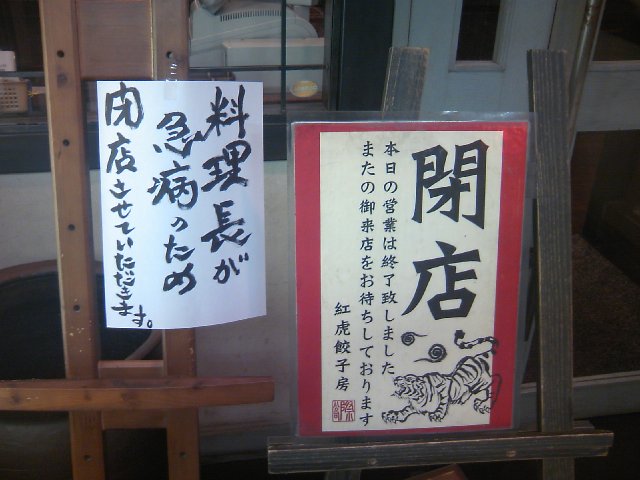 料理長が
急病のため
閉店させていただきます。
閉店
本日の営業は終了致しました
またの御来店をお待ちしております
紅虎餃子房